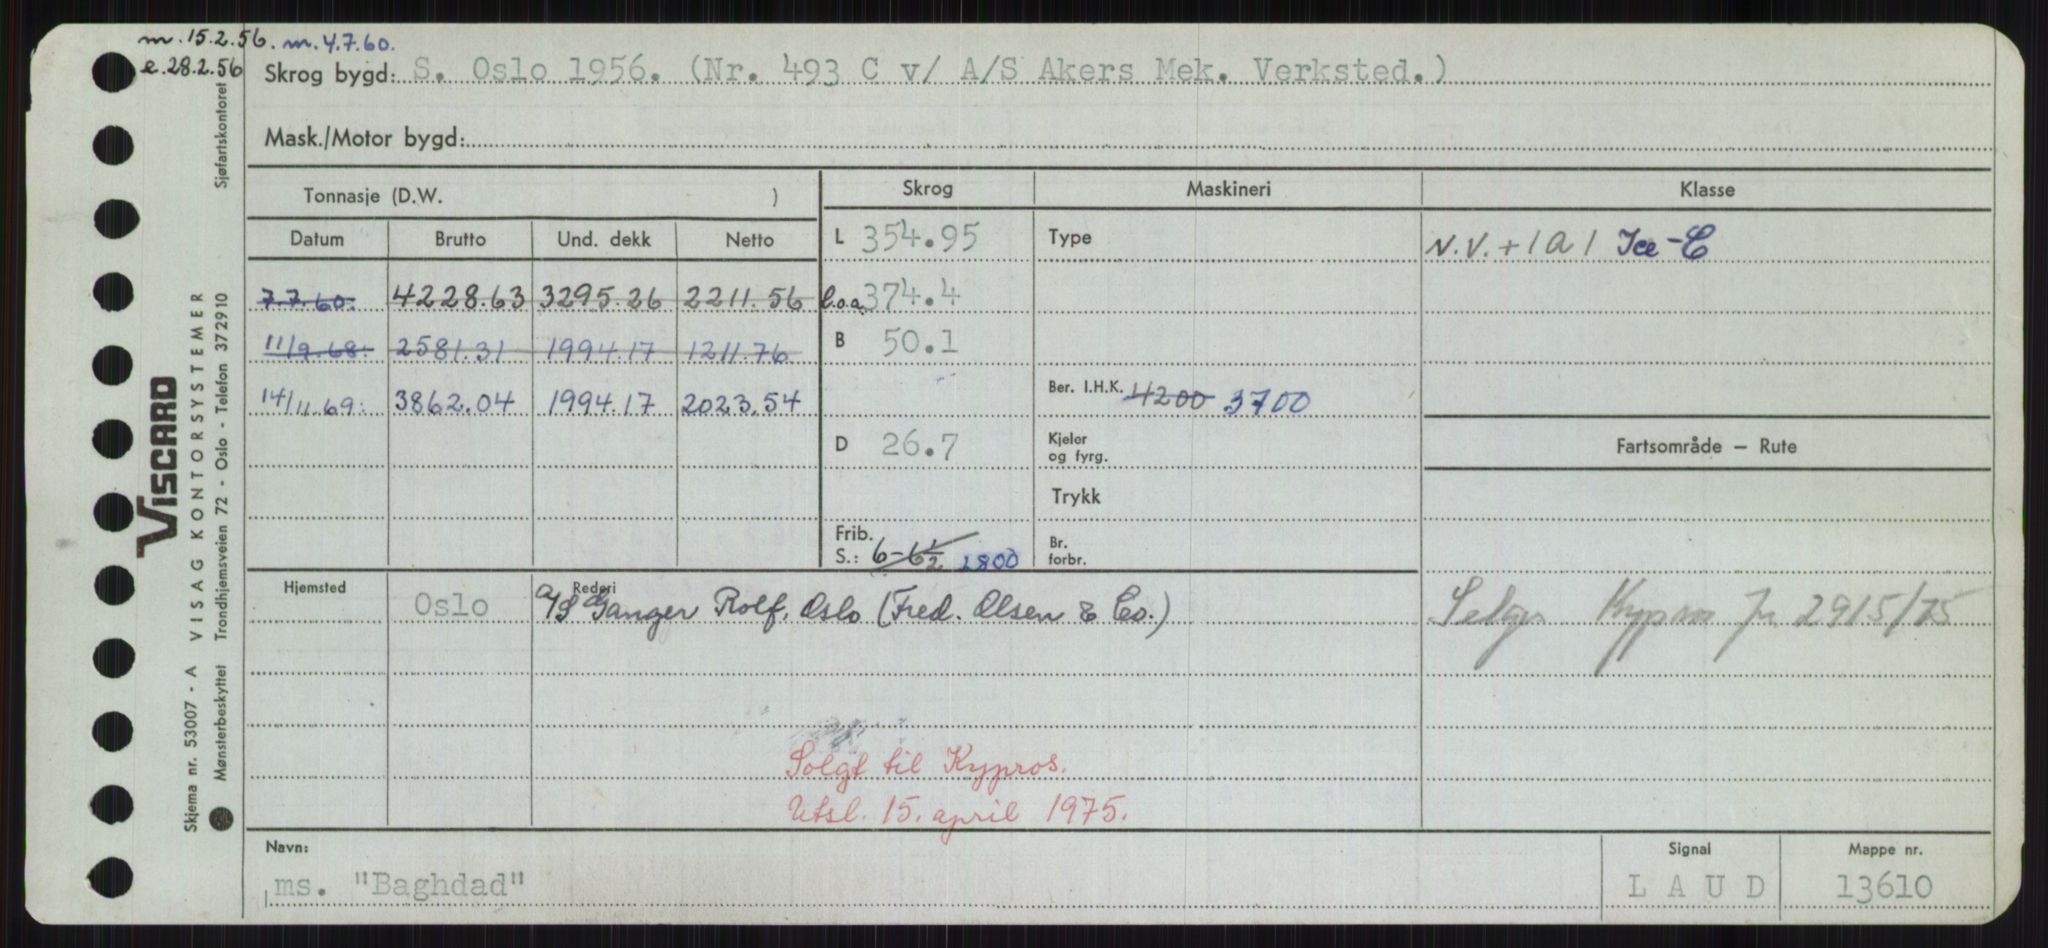 m. 15.2.56. m. 4.7.60.
e. 28.2.56
Skrog bygd: S. Oslo 1956. (Nr. 493 C v/ A/S Akers Mek. Verksted.)
Mask./Motor bygd:
Tonnasje (D.W. )
Skrog
Maskineri
Klasse
Datum Brutto Und. dekk Netto
L 354.95
Type
N.V. + 1 a 1 Ice-C
7.7.60. 4228.63 3295.26 2211.56
l.o.a. 374.4
11/9.68. 2581.31 1994.17 1211.76
B 50.1
14/11.69. 3862.04 1994.17 2023.54
Ber. I.H.K. 4200 3700
D 26.7
Kjeler
og fyrg.
Fartsområde — Rute
Trykk
Frib.
S.: 6-6½ 2800
Br.
forbr.
Hjemsted Oslo
Rederi
A/S Ganger Rolf, Oslo (Fred. Olsen & Co.)
Selges Kypros 2915/75
Solgt til Kypros.
Utsl. 15. april 1975.
Navn:
ms. "Baghdad"
Signal
L A U D
Mappe nr.
13610
VISCARD
VISAG KONTORSYSTEMER
Skjema nr. 53007 - A
Mønsterbeskyttet Trondhjemsveien 72 - Oslo - Telefon 372910
Sjøfartskontoret